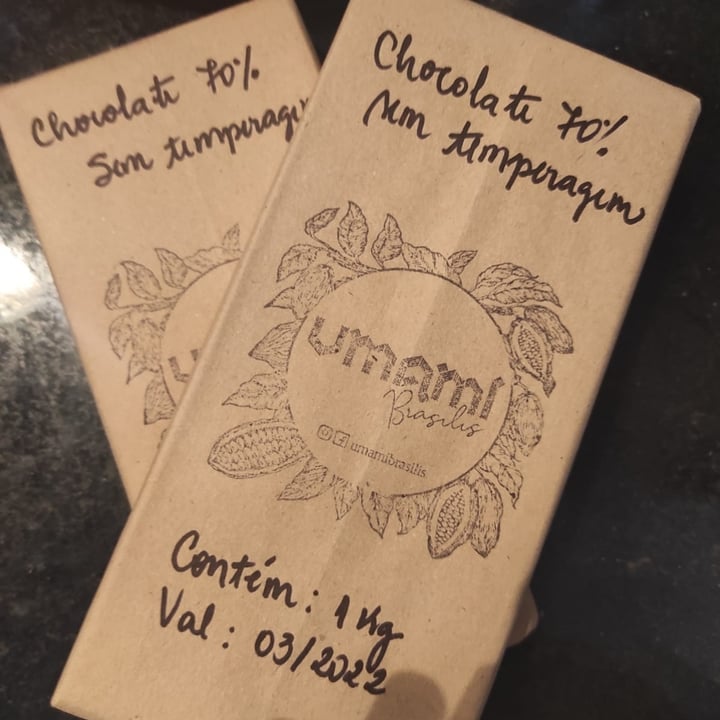 Chocolate 70%
Sem temperagem
Chocolate 70%
sem temperagem
U
umami
Brasilis
umamibrasilis
Contém: 1 Kg
Val: 03/2022